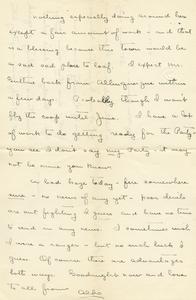 nothing especially doing around here
except a fair amount of work - and that
is a blessing because this town would be
a sad sad place to loaf. I expect Mr.
Guthrie back from Albuquerque within
a few days. Probably though I won't
fly the coop until June. I have a lot
of work to do getting ready for the Party
you see I don't say my Party - it may
not be mine you know.
Bad haze today - fire somewhere
sure - no news of any yet - poor devils
are out fighting I guess and have no time
to send in any news. I sometimes wish
I were a ranger - but no such luck I
guess. Of course there are advantages
both ways. Goodnight now and love
to all from
Aldo